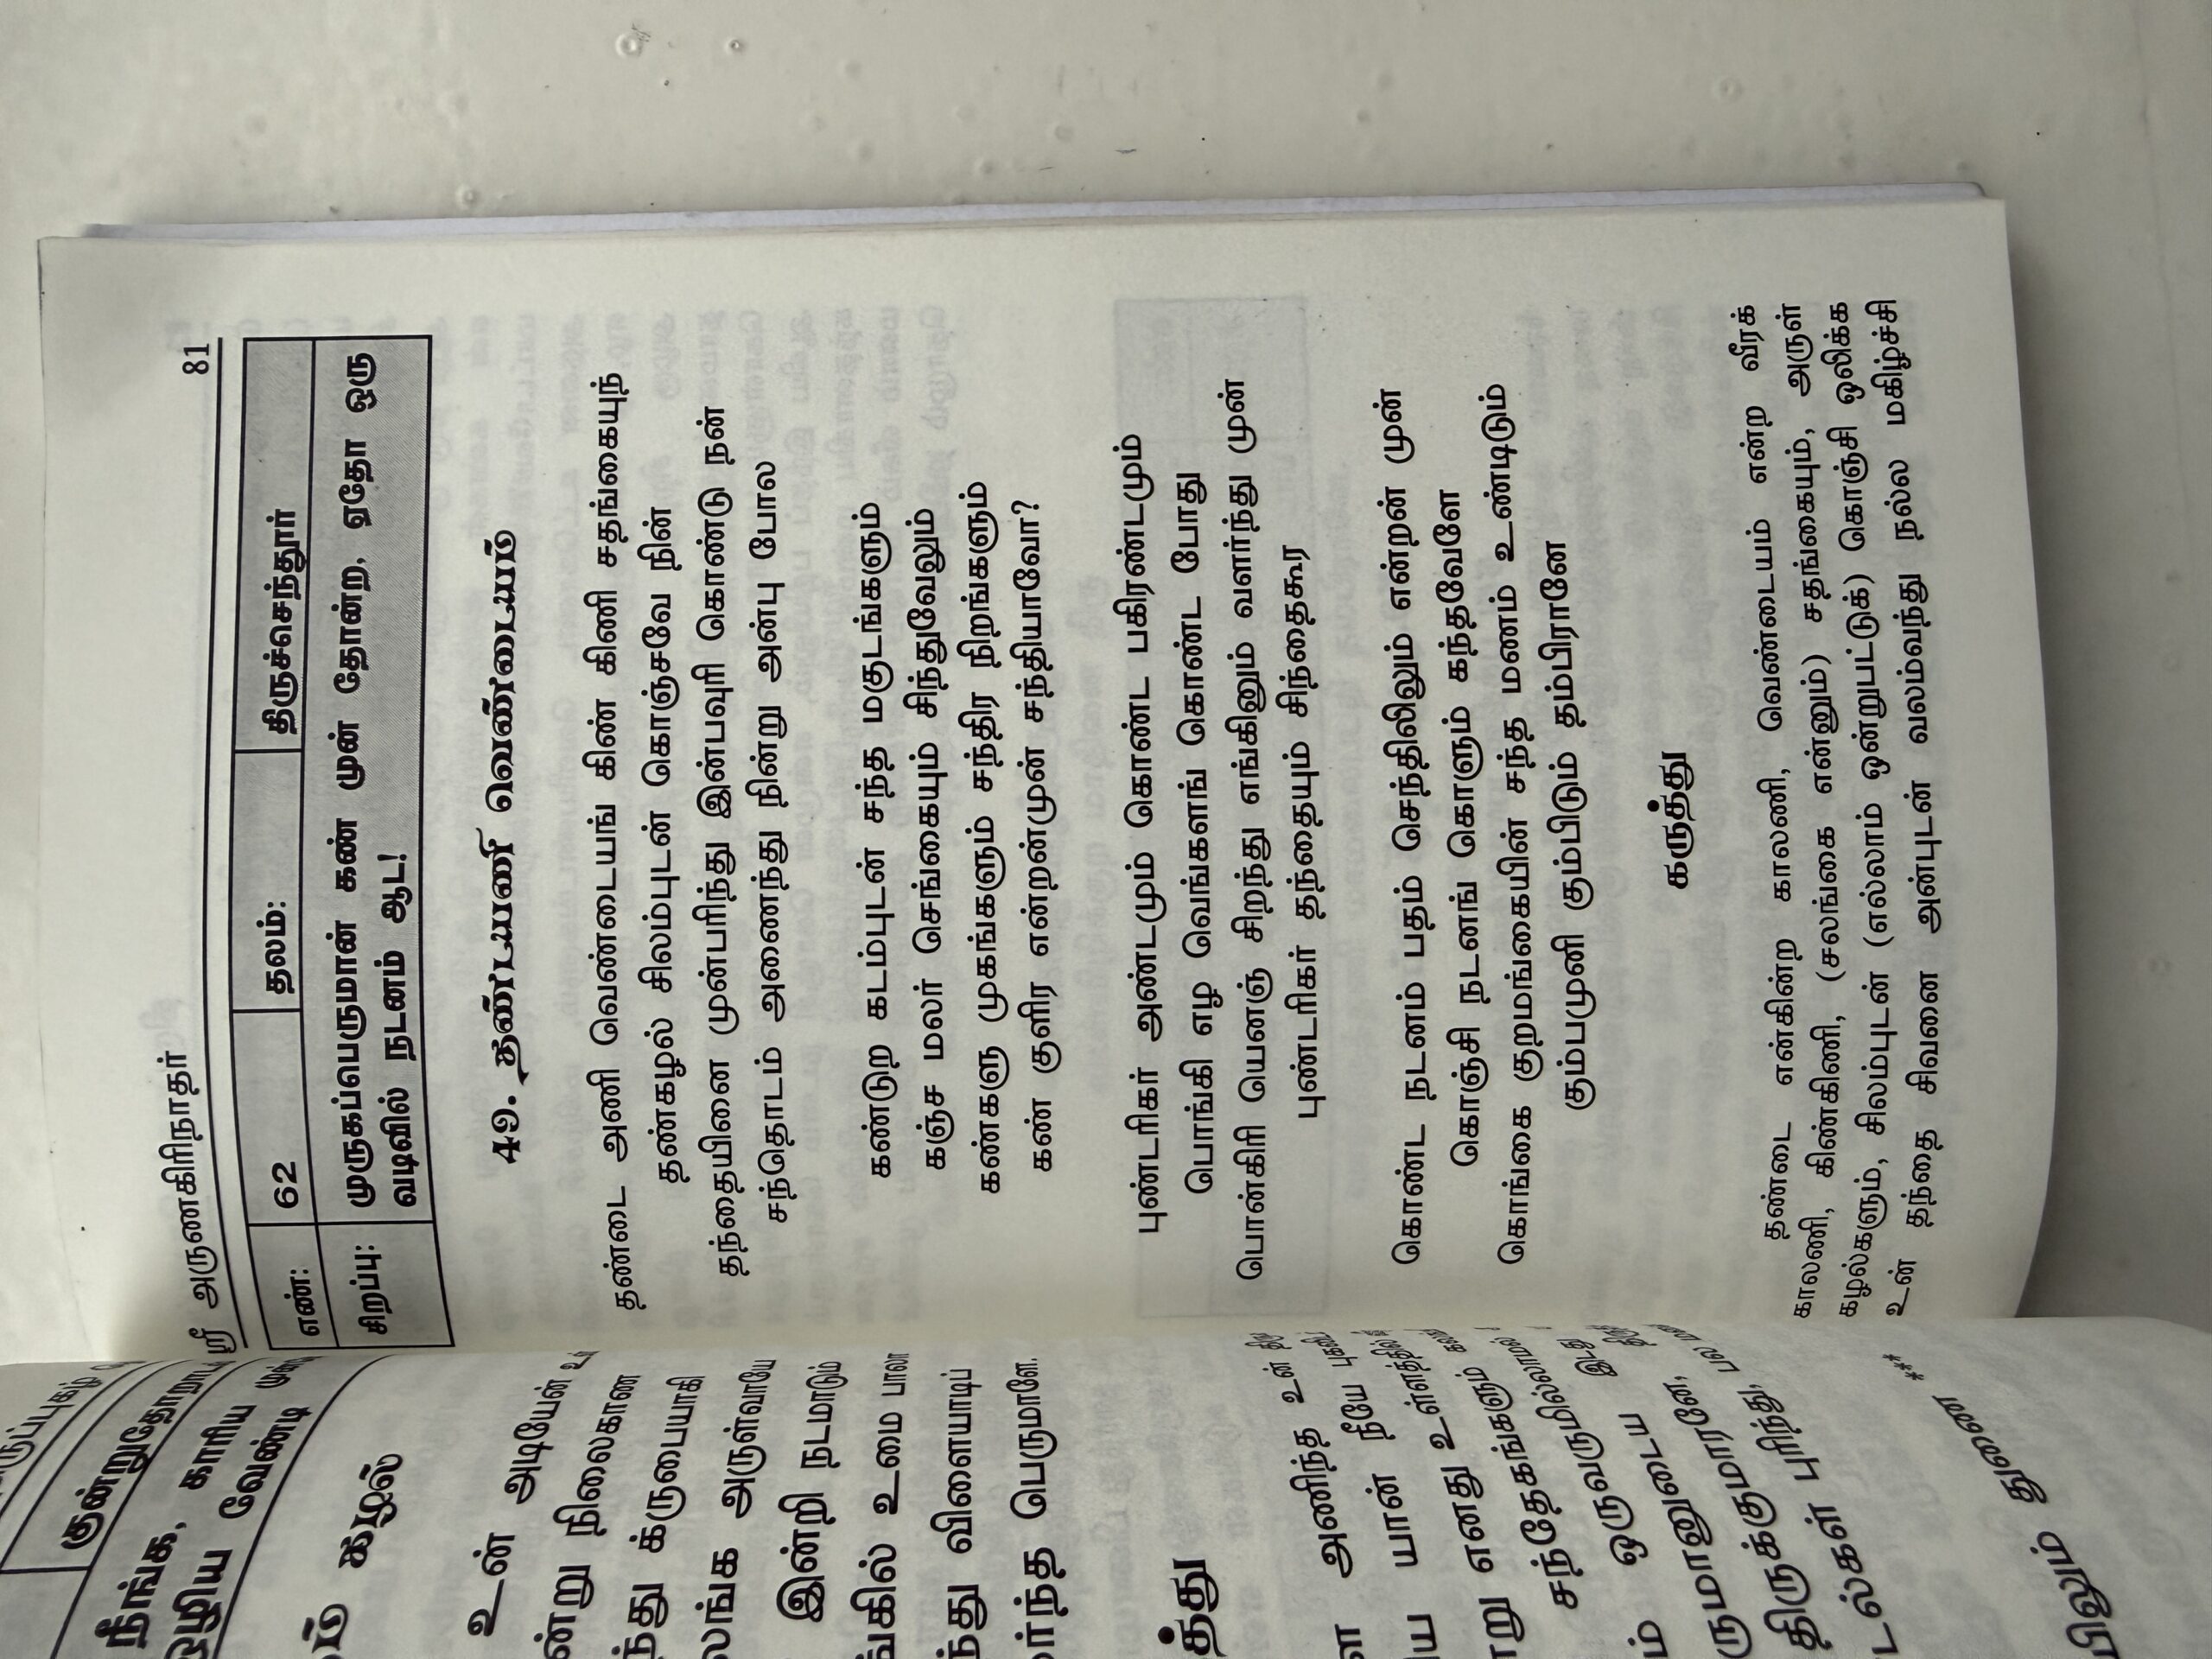 ஸ்ரீ அருணகிரிநாதர் 81
எண்: 62 தலம்: திருச்செந்தூர்
சிறப்பு: முருகப்பெருமான் கண் முன் தோன்ற, ஏதோ ஒரு
வடிவில் நடனம் ஆட!
49. தண்டயணி வெண்டையம்
தண்டை அணி வெண்டையங் கிண் கிணி சதங்கையுந்
தண்கழல் சிலம்புடன் கொஞ்சவே நின்
தந்தையினை முன்பரிந்து இன்பவுரி கொண்டு நன்
சந்தொடம் அணைந்து நின்று அன்பு போல
கண்டுற கடம்புடன் சந்த மகுடங்களும்
கஞ்ச மலர் செங்கையும் சிந்துவேலும்
கண்களு முகங்களும் சந்திர நிறங்களும்
கண் குளிர என்றன்முன் சந்தியாவோ?
புண்டரிகர் அண்டமும் கொண்ட பகிரண்டமும்
பொங்கி எழ வெங்களங் கொண்ட போது
பொன்கிரி யெனஞ் சிறந்து எங்கினும் வளர்ந்து முன்
புண்டரிகர் தந்தையும் சிந்தைகூர
கொண்ட நடனம் பதம் செந்திலிலும் என்றன் முன்
கொஞ்சி நடனங் கொளும் கந்தவேளே
கொங்கை குறமங்கையின் சந்த மணம் உண்டிடும்
கும்பமுனி கும்பிடும் தம்பிரானே
கருத்து
தண்டை என்கின்ற காலணி, வெண்டையம் என்ற வீரக்
காலணி, கிண்கிணி, (சலங்கை என்னும்) சதங்கையும், அருள்
கழல்களும், சிலம்புடன் (எல்லாம் ஒன்றுபட்டுக்) கொஞ்சி ஒலிக்க
உன் தந்தை சிவனை அன்புடன் வலம்வந்து நல்ல மகிழ்ச்சி
குன்றுதோறா
நீங்க, காரிய
வேண்டி
கழல்
உன் அடியேன்
ன்று நிலைகாண
ந்து க்ருபையாகி
லங்க அருள்வாயே
இன்றி நடமாடும்
ங்கில் உமை பாலா
ந்து விளையாடி
ர்ந்த பெருமானே.
த்து
அணிந்த உன்
ய யான் நீயே
ன்று எனது உள்ளத்தில்
சந்தேகங்களும்
ம் ஒருவருமில்லாமல்
ருமானுடைய இடது
திருக்குமாரனே,
டல்கள் புரிந்து, பல
யிலும் துணை ***